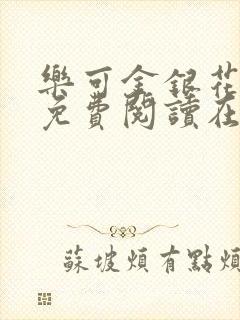 樂可金銀花
免費閱讀在
蘇坡煩有點煩